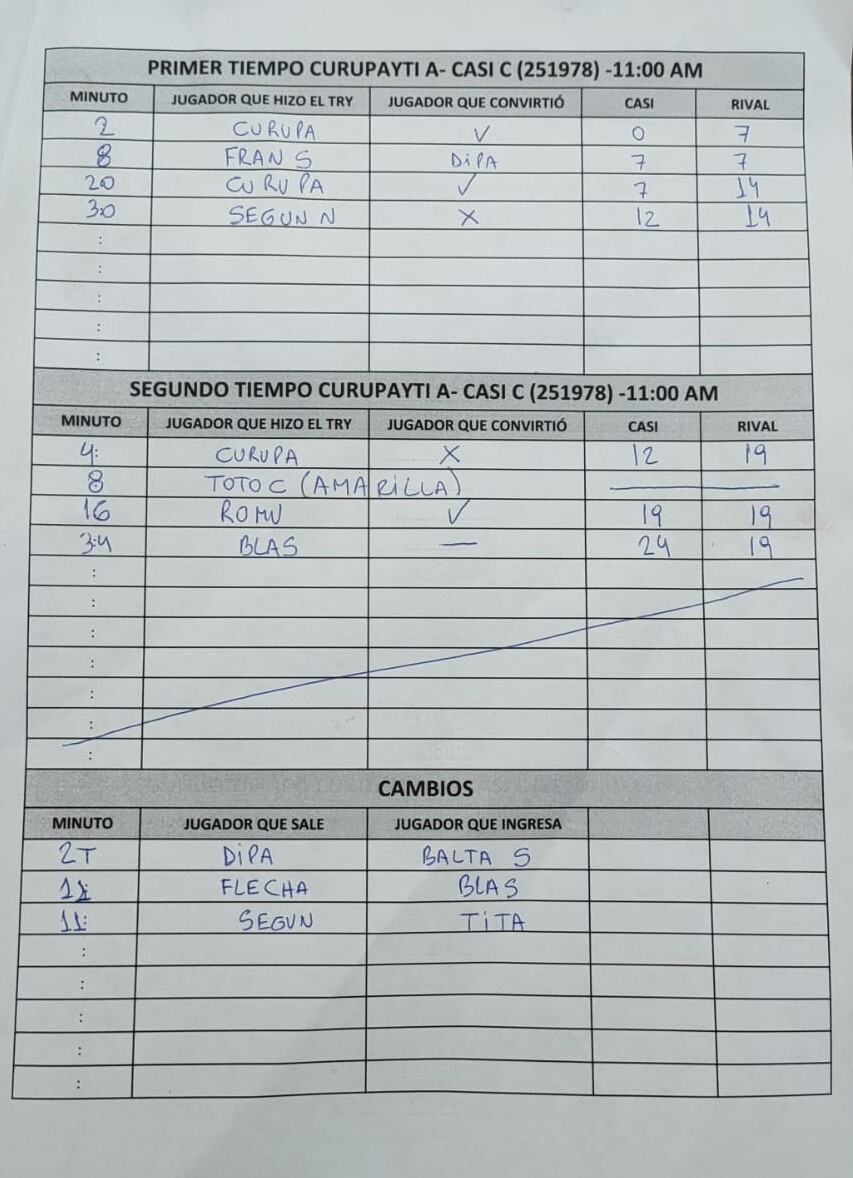 PRIMER TIEMPO CURUPAYTI A- CASI C (251978) -11:00 AM
MINUTO JUGADOR QUE HIZO EL TRY JUGADOR QUE CONVIRTIÓ CASI RIVAL
2 CURUPA ✓ 0 7
8 FRAN S DIPA 7 7
20 CURUPA ✓ 7 14
30 SEGUN N X 12 14
:
:
:
:
:
SEGUNDO TIEMPO CURUPAYTI A- CASI C (251978) -11:00 AM
MINUTO JUGADOR QUE HIZO EL TRY JUGADOR QUE CONVIRTIÓ CASI RIVAL
4: CURUPA X 12 19
8 TOTO C (AMARILLA) —
16 ROMU ✓ 19 19
3:4 BLAS — 24 19
:
:
:
:
:
:
:
CAMBIOS
MINUTO JUGADOR QUE SALE JUGADOR QUE INGRESA
2T DIPA BALTA S
FLECHA BLAS
11: SEGUN TITA
:
:
:
:
: